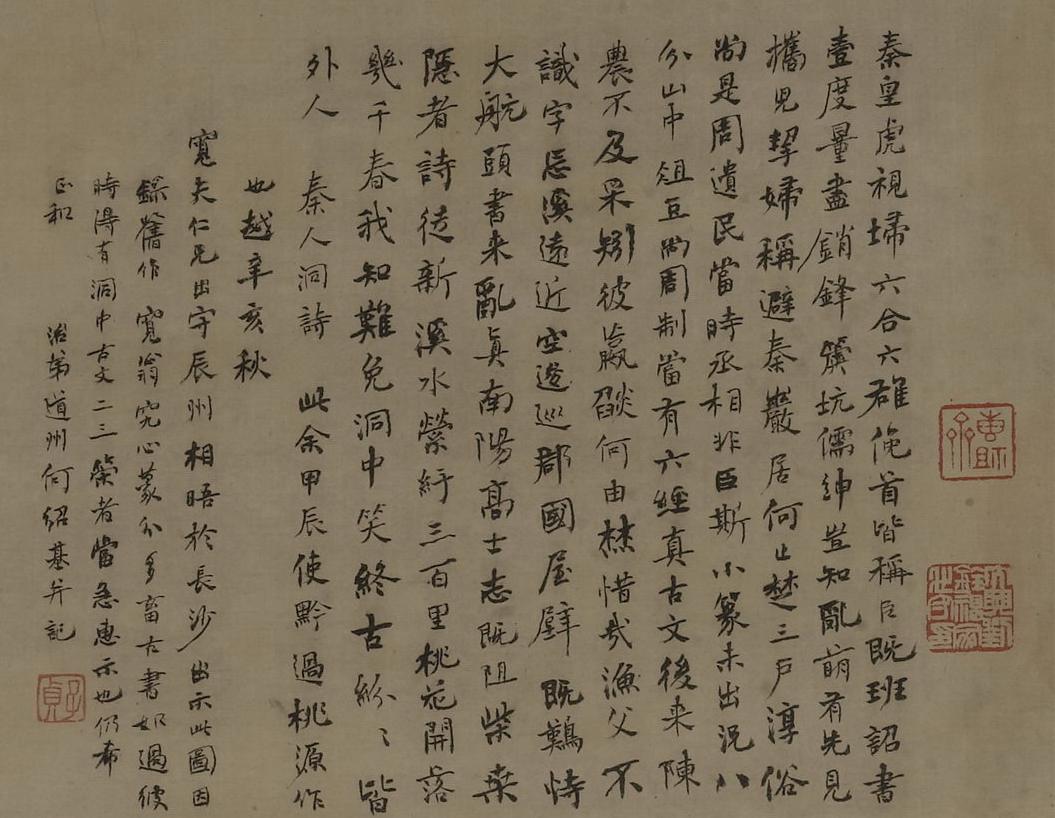 秦皇虎視埽六合六雄俛首皆稱臣既班詔書
壹度量盡銷鋒鏑坑儒紳豈知亂萌有先見
攜兒挈婦稱避秦巖居何止楚三戶淳俗
尚是周遺民當時丞相非臣斯小篆未出況八
分山中俎豆尚周制當有六經真古文後來陳
農不及采矧彼嬴燄何由焚惜哉漁父不
識字忘溪遠近空造巡郡國屋壁既難恃
大航頭書來亂真南陽高士志既阻柴桑
隱者詩徒新溪水縈紆三百里桃花開落
幾千春我知難免洞中笑終古紛〻皆
外人 秦人洞詩 此余甲辰使黔過桃源作
也越辛亥秋
寬夫仁兄出守辰州相晤於長沙出示此圖因
錄舊作 寬翁究心篆分多畜古書如過彼
時得有洞中古文二三策者當急惠示也仍希
正和 治弟道州何紹基并記
子貞